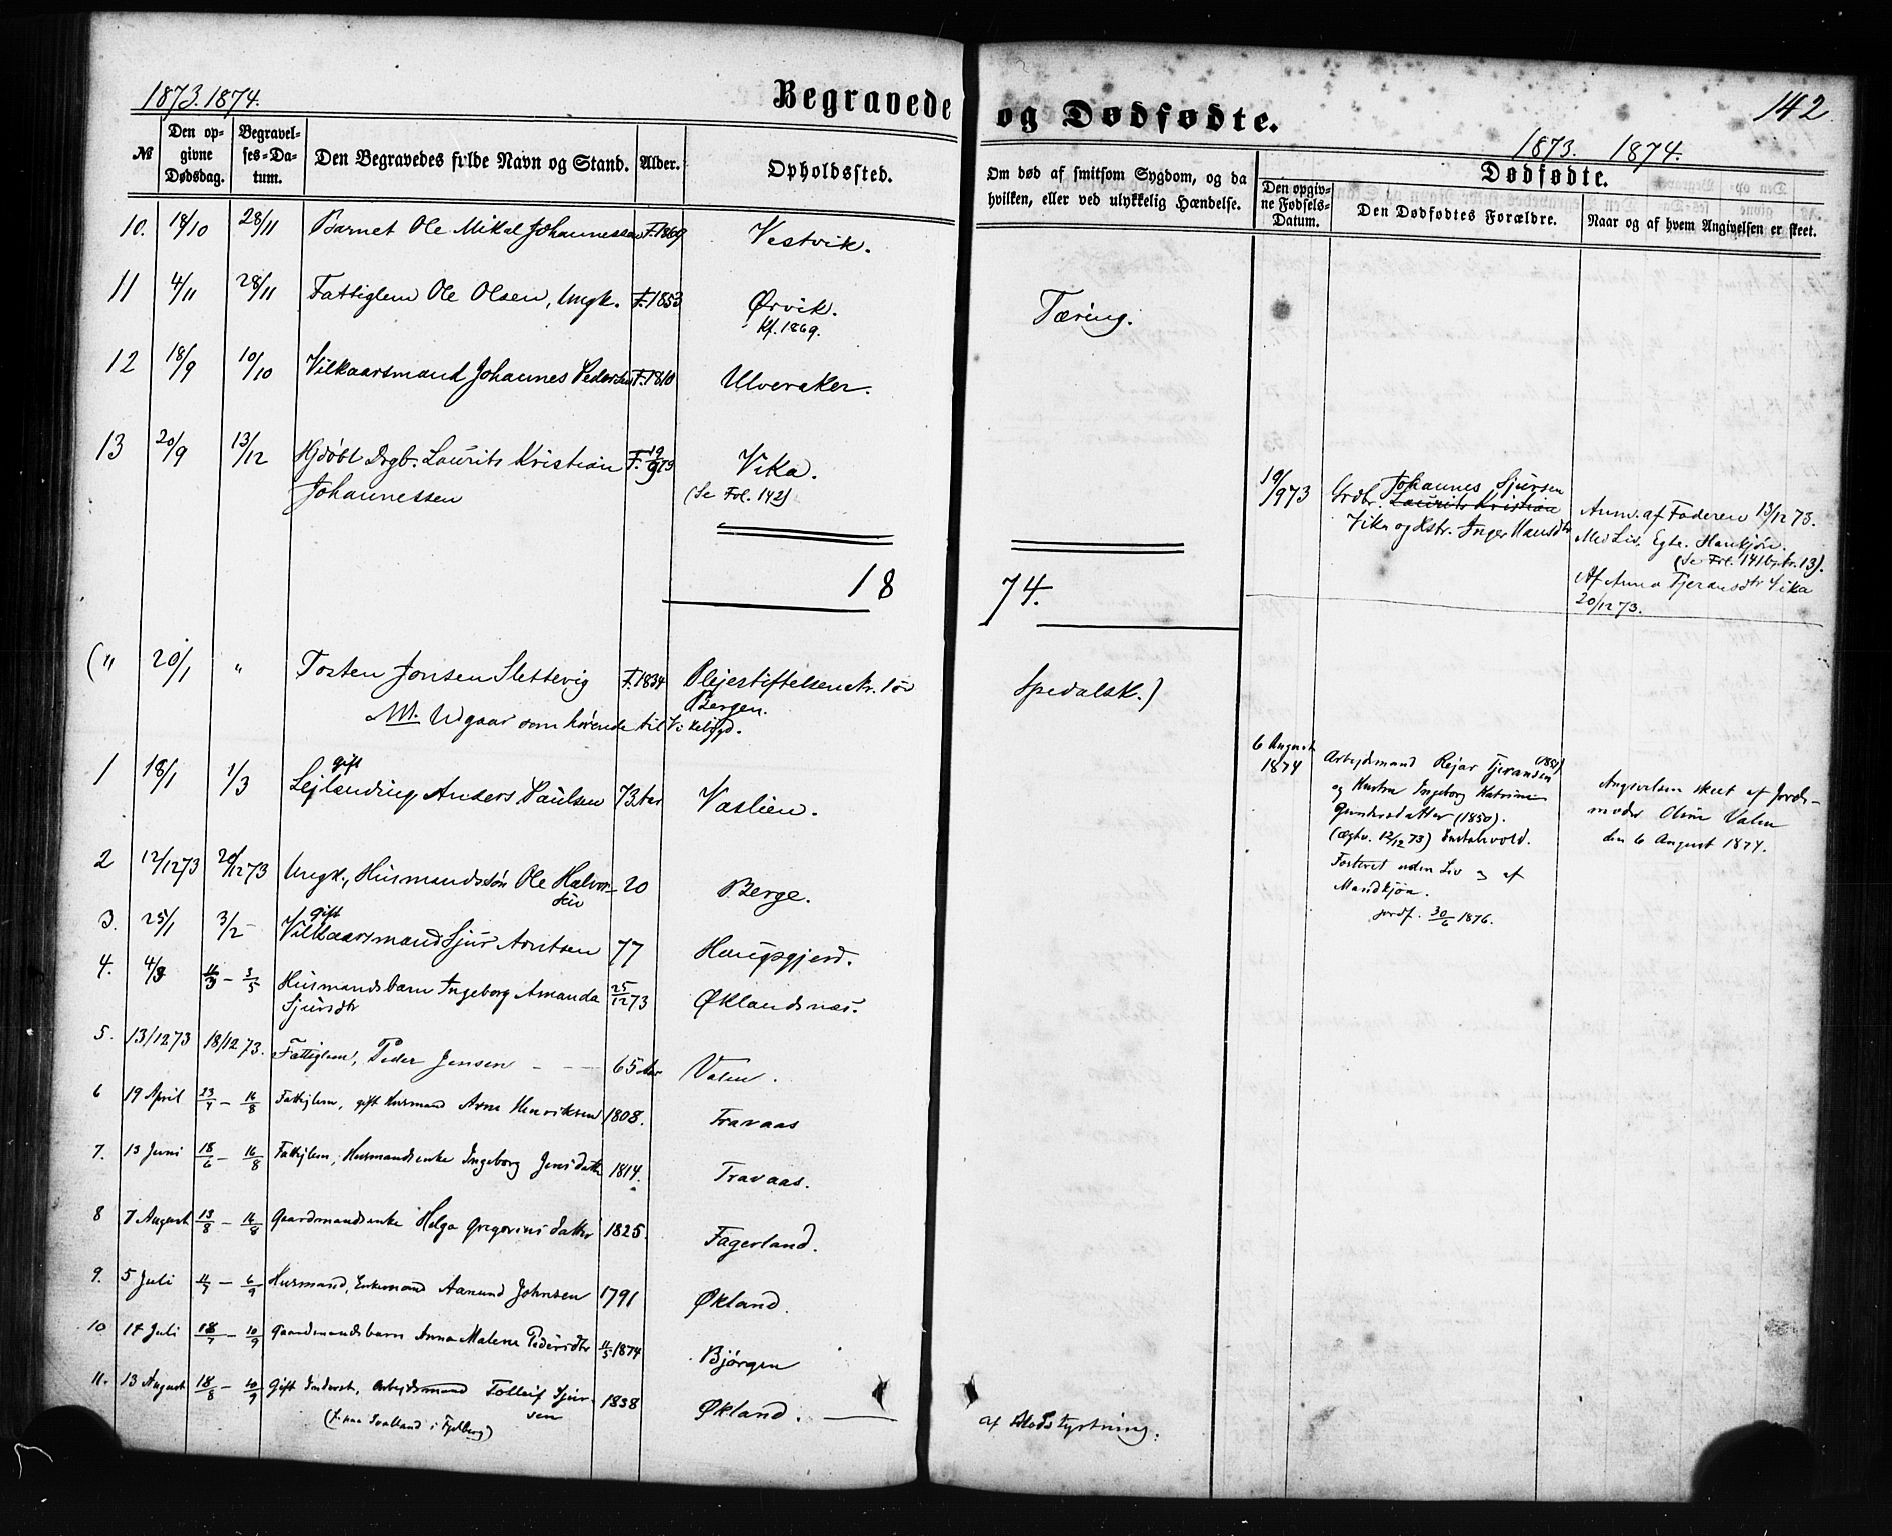 1873. 1874.
Begravede
og Dødfødte.
142
1873. 1874.
№
Den op-
givne
Dødsdag.
Begravel-
ses-Da-
tum.
Den Begravedes fulde Navn og Stand.
Alder.
Opholdssted.
Om død af smitsom Sygdom, og da
hvilken, eller ved ulykkelig Hændelse.
Dødfødte.
Den opgiv-
ne Fødsels-
Datum.
Den Dødfødtes Forældre.
Naar og af hvem Angivelsen er skeet.
10. 18/10 28/11 Barnet Ole Mikal Johannessen F.1869 Vestvik.
11 4/11 28/11 Fattiglem Ole Olsen, Ungk. F.1853 Ørvik. Tæring.
Kf. 1869.
12 18/9 10/10 Vilkaarsmand Johannes Pedersen F.1810 Ulveraker.
13 20/9 13/12 Hjdøbt Drgb. Laurits Kristian F. 19/9 73 Vika.
Johannessen (Se Fol. 142)
19/9 73 Grdbr. Johannes Sjursen
Laurits Kristian
Vika og Kstr. Inger Hansdtr
Anm. af Faderen 13/12 73.
Med Liv. Egte. Hankjøn.
(Se Fol. 141b, nr. 13).
Af Anna Tjeransdtr Vika
20/12 73.
18 74.
(" 20/1 " Tosten Jonsen Slettevig F.1834 Plejestiftelsen nr. 1 i Spedalsk.)
Bergen.
NB. Udgaar som hørende til Vikebygd.
1 18/1 1/3 gift
Lejlending Anders Paulsen 73 Aar Vaslien.
2 12/12 73 20/12 73 Ungk., Husmandssøn Ole Halvor- 20 Berge.
sen
3. 25/1 3/2 - gift
Vilkaarsmand Sjur Arntsen 77 Haugsgjerd.
4. 4/3 11/3 - 3/5 Husmandsbarn Ingeborg Amanda 25/12 73 Øklandsnæs.
Sjursdtr
5. 13/12 73 18/12 73. Fattiglem, Peder Jensen - - - 65 Aar Valen.
6 19 April 23/4 - 16/8 Fattiglem, gift Husmand Arne Henriksen 1808. Travaas
7. 13 Juni 18/6 - 16/8 Fattiglem, Husmandsenke Ingeborg Jensdatter 1814. Travaas.
8 7 August 13/8 - 16/8 Gaardmandsenke Helga Gregoriusdatter 1825. Fagerland.
9. 5 Juli 11/7 - 6/9 Husmand, Enkemand Aamund Johnsen 1791 Økland.
10 14 Juli 18/7 - 10/9 Gaardmandsbarn Anna Malene Pedersdtr 11/5 1874 Bjørgen
11. 13 August 18/8 - 10/9 Gift Inderst, Arbejdsmand Tolleif Sjur- 1838 Økland. af Blodstyrtning.
sen
(F. paa Svalland i Fjelberg)
6 August
1874
Arbejdsmand Rejar Tjeransen (1851)
og Hustru Ingeborg Katrine
Gundersdatter (1850).
(ægtv. 12/12 73)
Fosteret uden Liv og af
Mandkjøn.
jordf. 30/6 1876.
Angivelsen skeet af Jorde-
moder Oline Valen
den 6 August 1874.